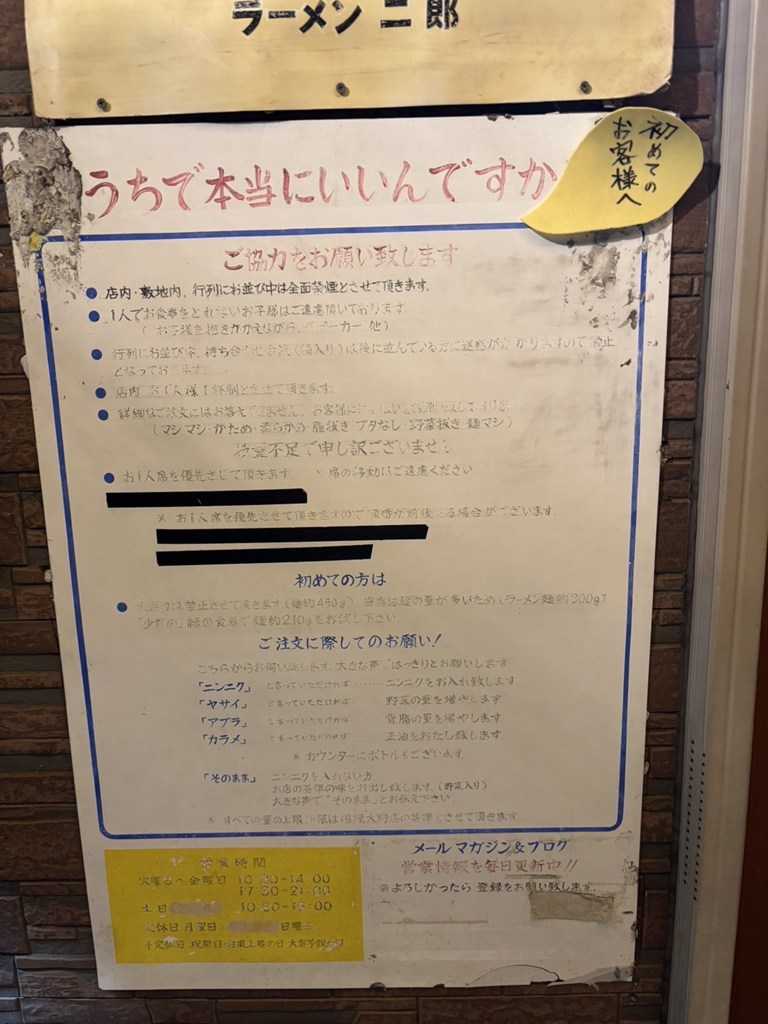 ラーメン二郎
初めての
お客様へ
うちで本当にいいんですか
ご協力をお願い致します
● 店内・敷地内、行列にお並び中は全面禁煙とさせて頂きます。
● 1人でお食事をとれないお子様はご遠慮頂いております
● 行列にお並び 待ち合わせ (途中入り)は後に並んでいる方に迷惑がかかりますので 止
となっております。
● 店内 お1人様1杯制とさせて頂きます。
● 詳細なご注文にはお答え
(マシマシ・かため・柔らかめ・脂抜き・ブタなし・野菜抜き・麺マシ)
不足で申し訳ございません
● お1人席を優先させて頂きます 席の移動はご遠慮ください
※ お1人席を優先させて頂きますので 前後する場合がございます
初めての方は
● は禁止させて頂きます(麺約450g) 当店は麺の量が多いため(ラーメン麺約300g)
麺約210gをお試し下さい
ご注文に際してのお願い!
こちらからお伺い致します。大きな声ではっきりとお願いします
「ニンニク」 と言っていただければ……ニンニクをお入れ致します
「ヤサイ」 と言っていただければ 野菜の量を増やします
「アブラ」 と言っていただければ 背脂の量を増やします
「カラメ」 と言っていただければ 正油をおたし致します
※ カウンターにボトルもございます
「そのまま」 ニンニクを入れない方
お店の基準の味をお出し致します。(野菜入り)
大きな声で"そのまま"とお伝え下さい
※ すべての量の上限 店の基準とさせて頂きます
営業時間
火曜日〜金曜日
17:30-21:00
土日
定休日 月曜日・ 日曜
不定休日
メールマガジン&ブログ
営業情報を毎日更新中!!
※よろしかったら 登録をお願い致します。